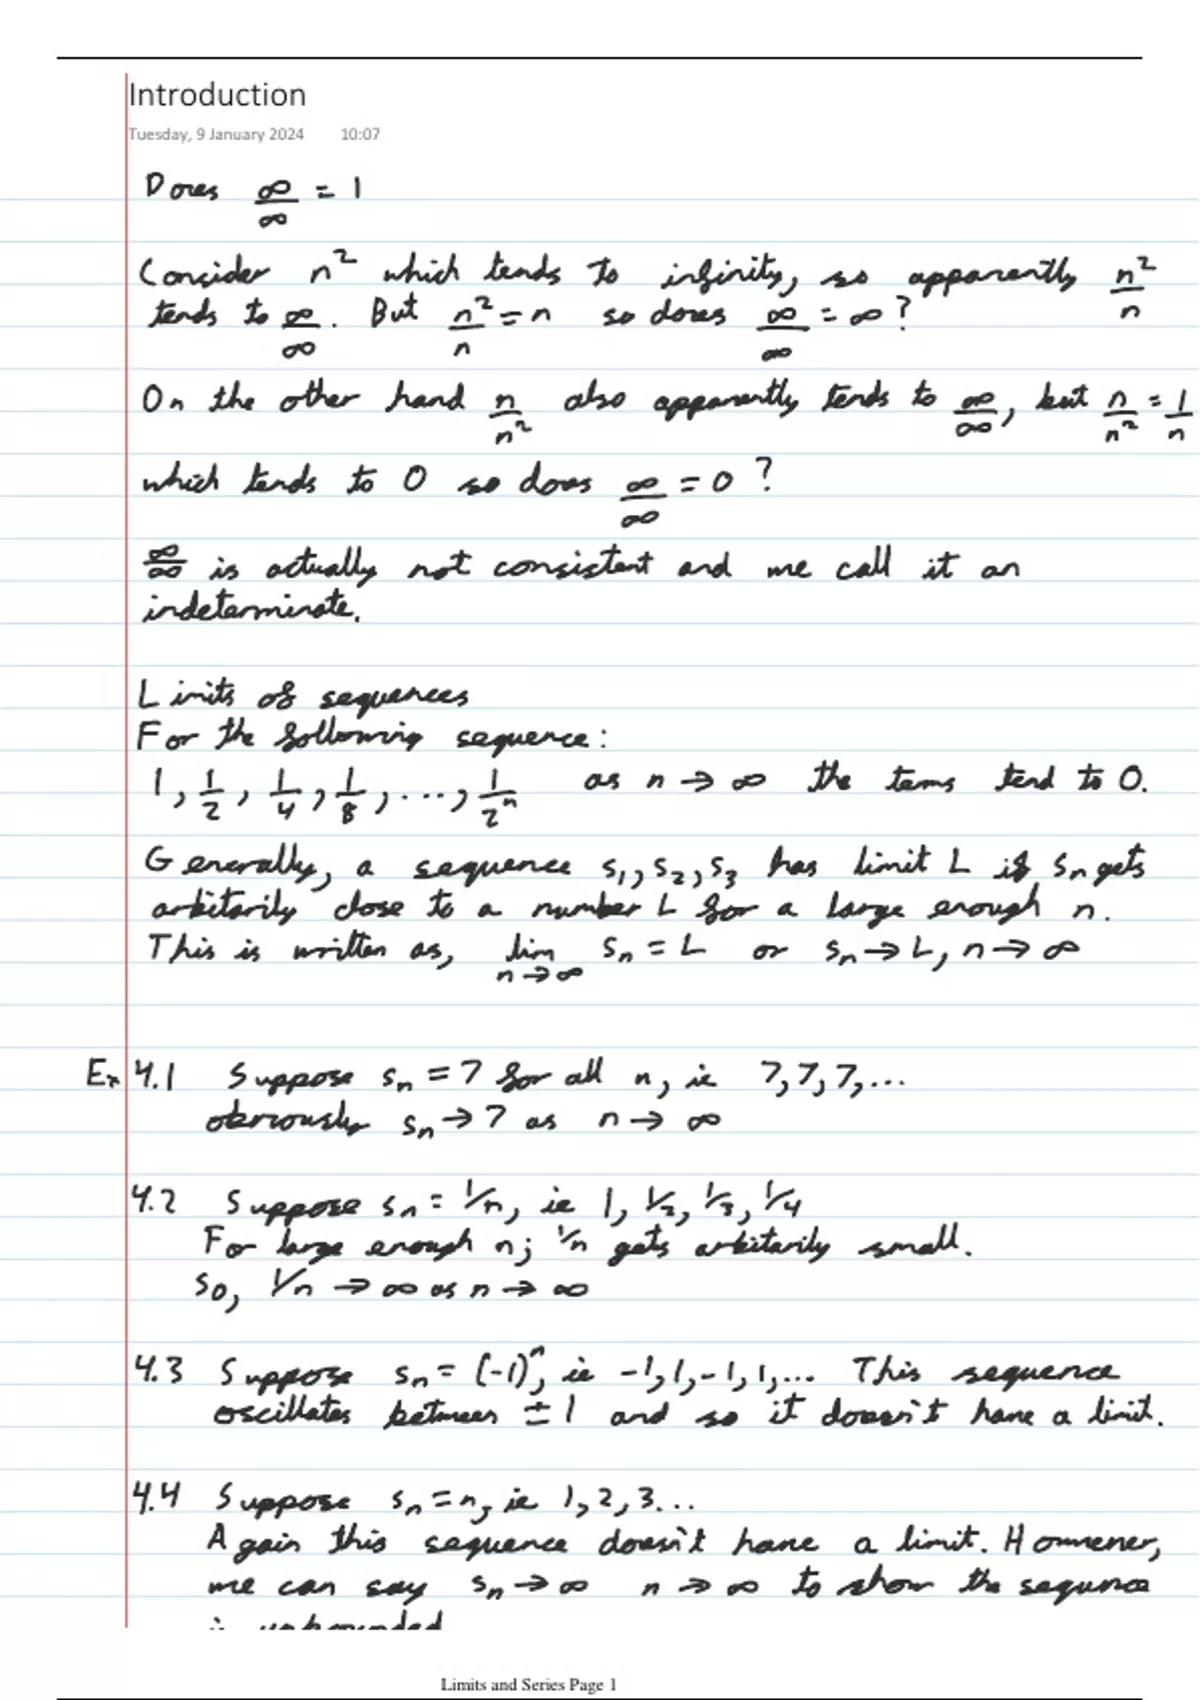 Introduction
Tuesday, 9 January 2024 10:07
Does ∞/∞ = 1
Consider n² which tends to infinity, so apparently n²/n
tends to ∞/∞. But n²/n = n so does ∞/∞ = ∞?
On the other hand n/n² also apparently tends to ∞/∞, but n/n² = 1/n
which tends to 0 so does ∞/∞ = 0?
∞/∞ is actually not consistent and we call it an
indeterminate.
Limits of sequences
For the following sequence:
1, 1/2, 1/4, 1/8, ..., 1/2ⁿ as n → ∞ the terms tend to 0.
Generally, a sequence s₁, s₂, s₃ has limit L if sₙ gets
arbitarily close to a number L for a large enough n.
This is written as, lim n→∞ sₙ = L or sₙ → L, n → ∞
Ex 4.1 Suppose sₙ = 7 for all n, ie 7, 7, 7, ...
obviously sₙ → 7 as n → ∞
4.2 Suppose sₙ = 1/n, ie 1, 1/2, 1/3, 1/4
For large enough n; 1/n gets arbitarily small.
So, 1/n → ∞ as n → ∞
4.3 Suppose sₙ = (-1)ⁿ, ie -1, 1, -1, 1, ... This sequence
oscillates between ± 1 and so it doesn't have a limit.
4.4 Suppose sₙ = n, ie 1, 2, 3...
Again this sequence doesn't have a limit. However,
we can say sₙ → ∞ n → ∞ to show the sequence
is unbounded
Limits and Series Page 1